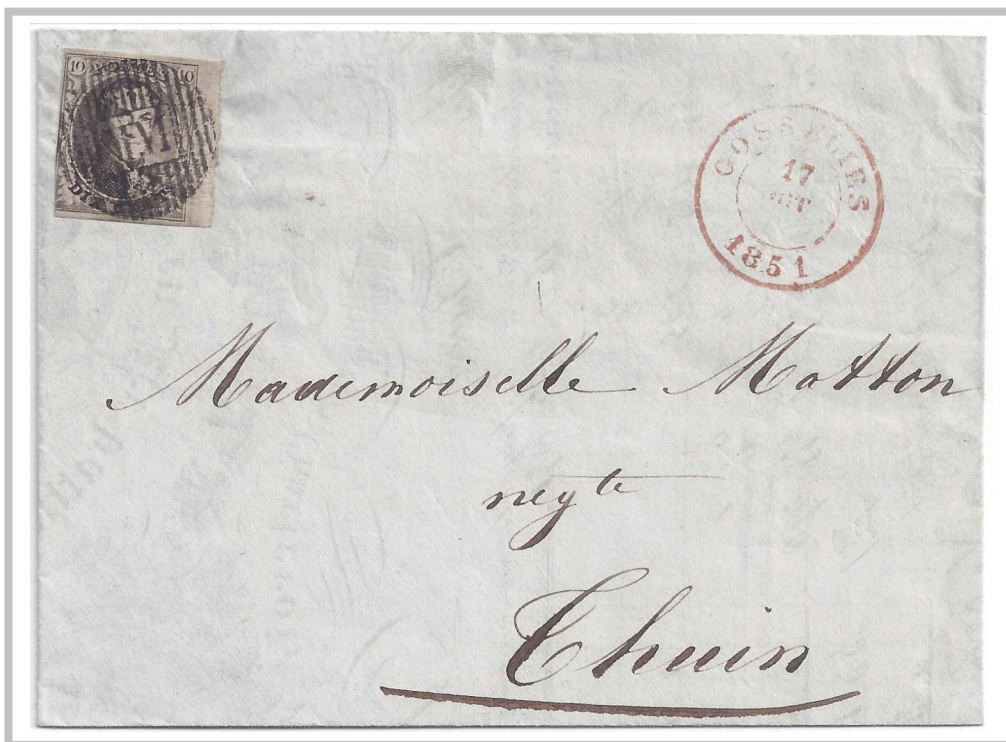 10 POSTES 10
GOSSELIES
17
OCT
1851
Mademoiselle Motton
negte
Thuin